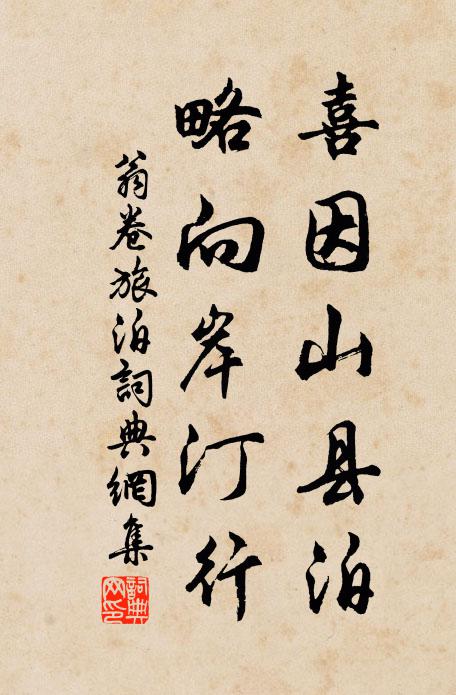 喜因山县泊
略向岸汀行
翁卷旅泊詞典網集
詞典网印